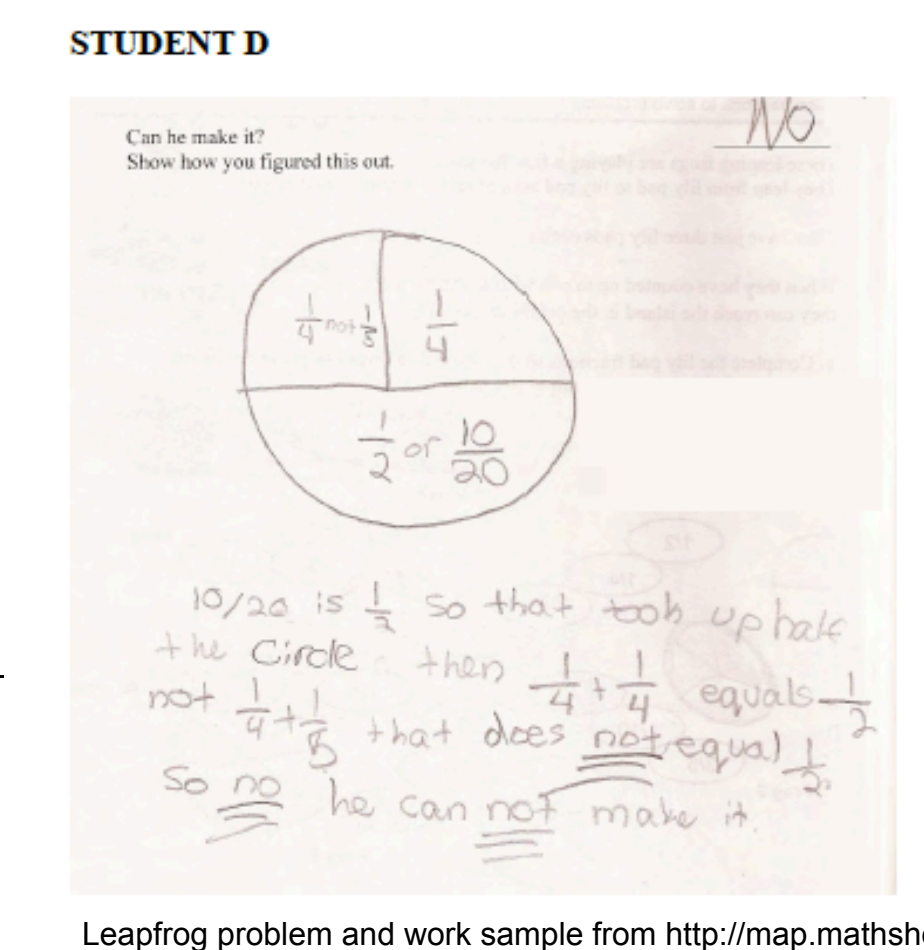 STUDENT D
NO
Can he make it?
Show how you figured this out.
1/4 not 1/5
1/4
1/2 or 10/20
10/20 is 1/2 so that took up half
the Circle then 1/4 + 1/4 equals 1/2
not 1/4 + 1/5 that does not equal 1/2
So no he can not make it.
Leapfrog problem and work sample from http://map.mathsh